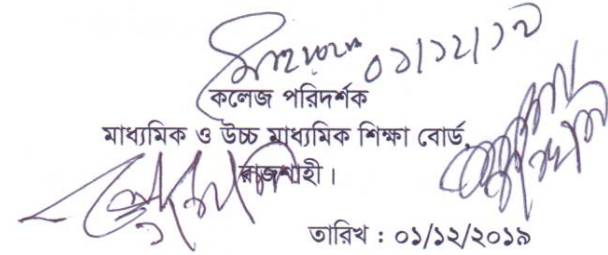 ০১/১২/১৯
কলেজ পরিদর্শক
মাধ্যমিক ও উচ্চ মাধ্যমিক শিক্ষা বোর্ড,
রাজশাহী।
তারিখ : ০১/১২/২০১৯